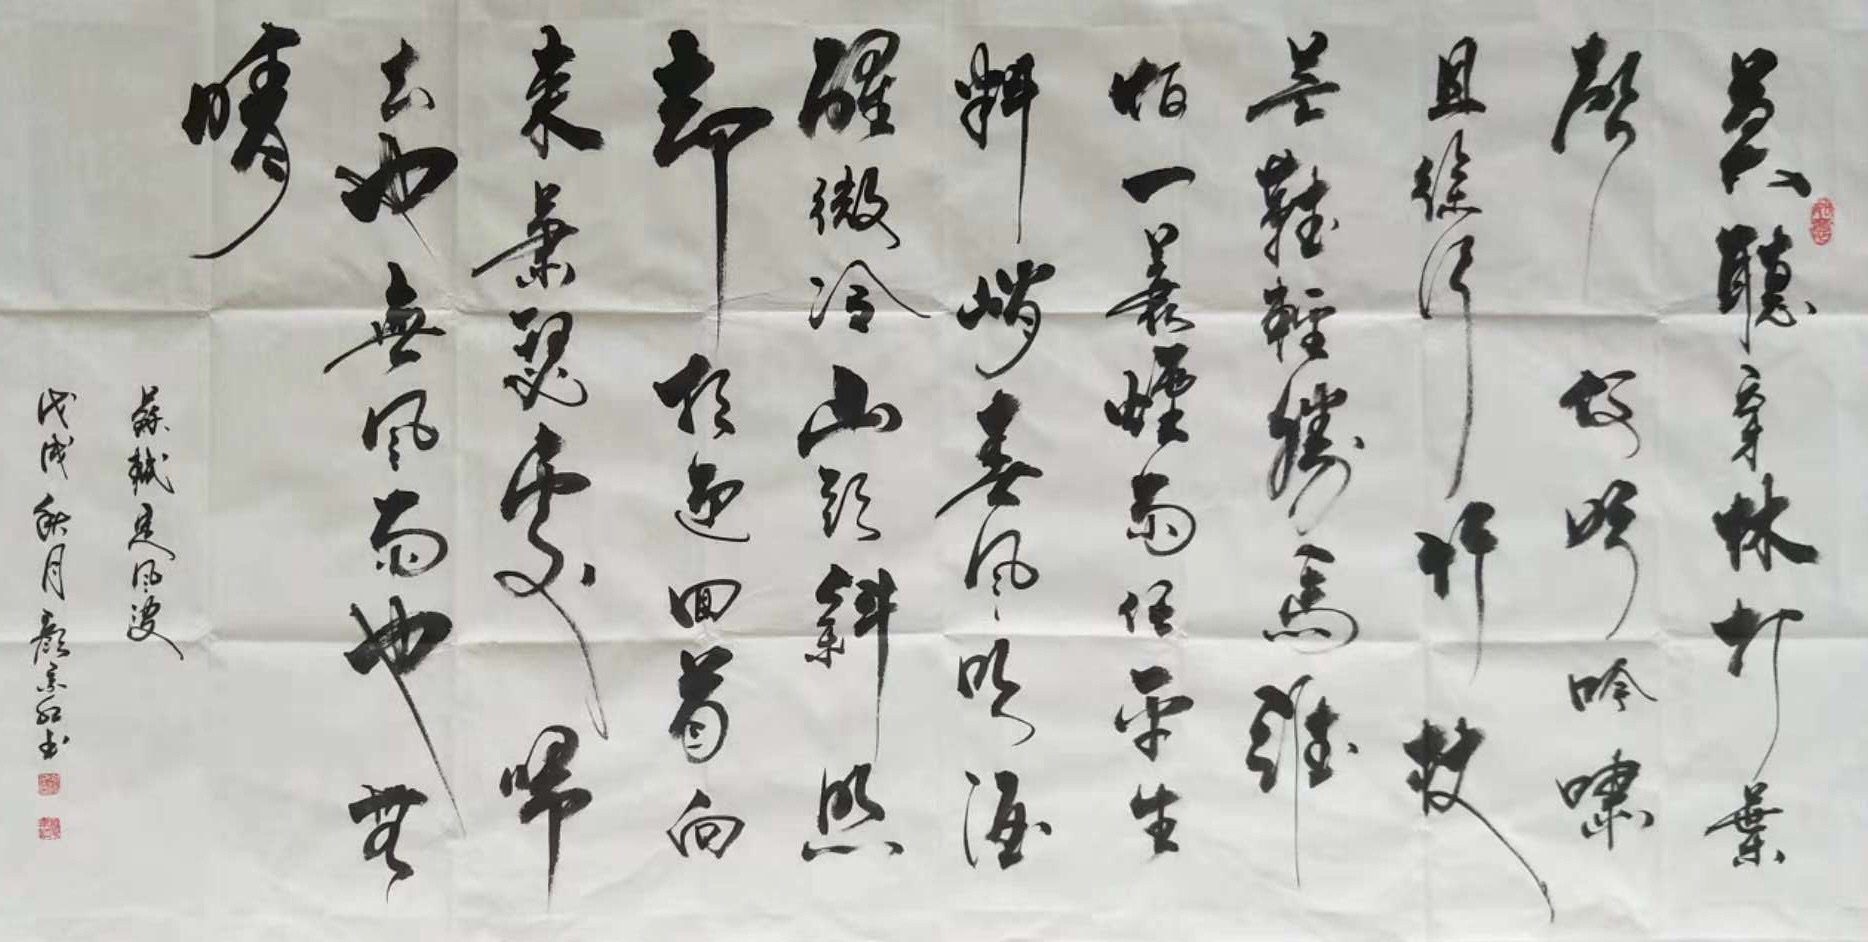 莫聽穿林打葉
聲何妨吟嘯
且徐行竹杖
芒鞋輕勝馬誰
怕一蓑煙雨任平生
料峭春風吹酒
醒微冷山頭斜照
却相迎回首向
來蕭瑟處歸
去也無風雨也無
晴
蘇軾定風波
戊戌秋月顏景紅書